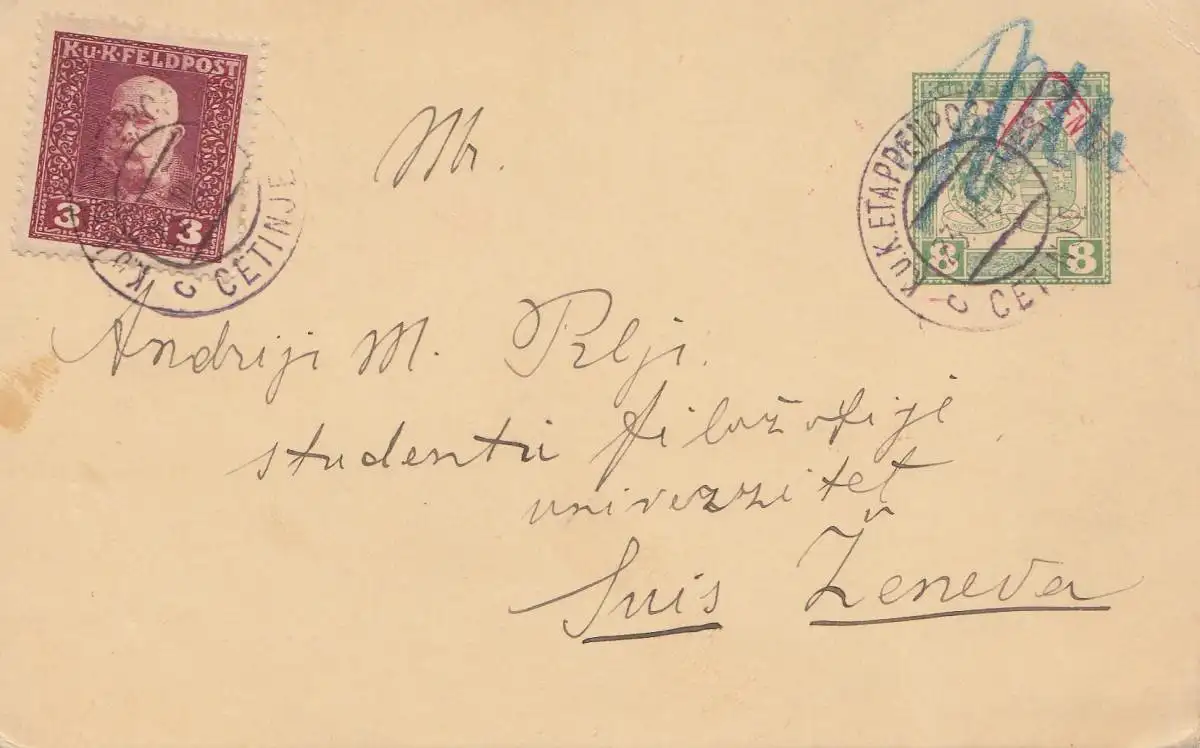 K.u.K. FELDPOST
3 3
CETINJE
8 8
K.u.K. ETAPPENPOST
CETINJE
Mr.
Andriji M. Prlji.
studentu filožofije
univerzitet
Suis Ženeva